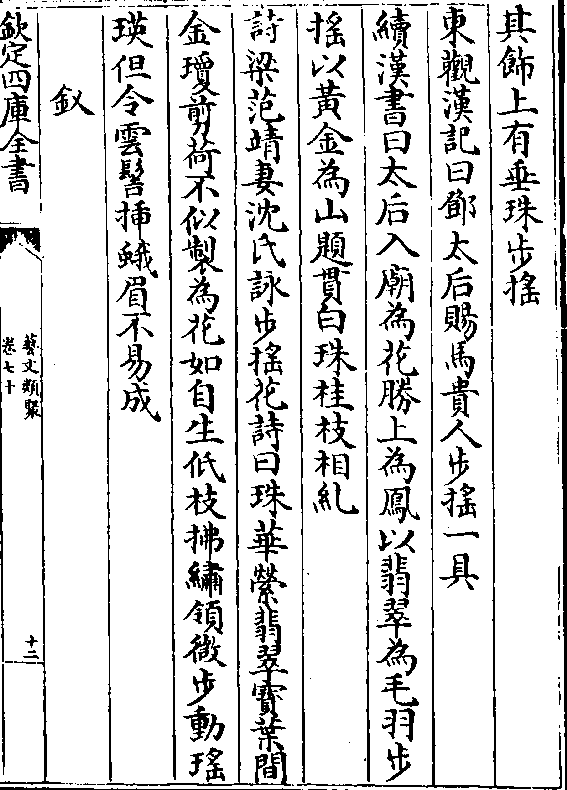 其飾上有垂珠步搖
東觀漢記曰鄧太后賜馬貴人步搖一具
續漢書曰太后入廟為花勝上為鳳以翡翠為毛羽步
搖以黃金為山題貫白珠桂枝相糺
詩梁范靖妻沈氏詠步搖花詩曰珠華縈翡翠寶葉間
金瓊剪荷不似製為花如自生低枝拂繡領微步動瑤
瑛但令雲髻揷蛾眉不易成
釵
欽定四庫全書
藝文類聚
卷七十
十三